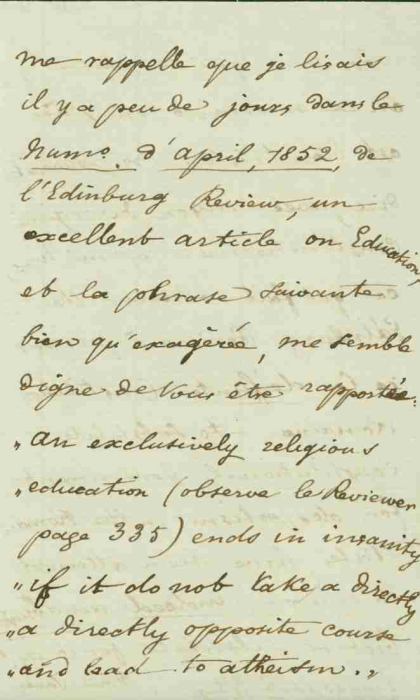 me rappelle que je lisais
il y a peu de jours dans le
Numo. d'april, 1852, de
l'Edinburg Review, un
excellent article on Education,
et la phrase suivante
bien qu'exagérée, me semble
digne de vous être rapportée:
„An exclusively religious
„education (observe le Reviewer
page 335) ends in insanity
„if it do not take a directly
„a directly opposite course
„and lead to atheism.„